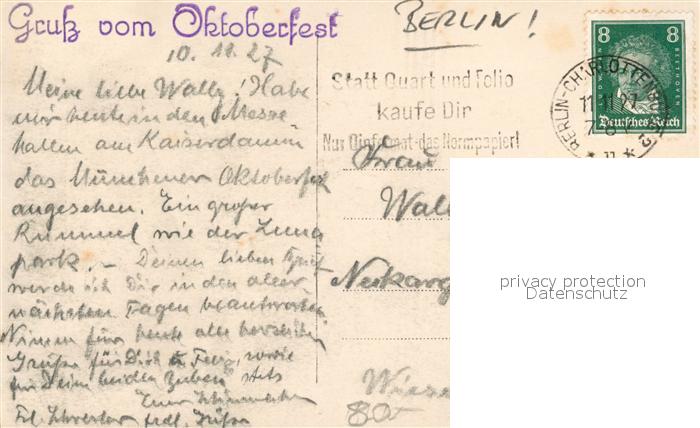 Gruß vom Oktoberfest
BERLIN!
10. 11. 27
Meine liebe Wally! Habe
mir heute in den Messe
hallen am Kaiserdamm
das Münchener Oktoberfest
angesehen. Ein großer
Rummel wie der Luna
park. – Deinen lieben Brief
werde ich Dir in den aller
nächsten Tagen beantworten
Nimm für heute alle herzlichen
Grüße für Dich u. Felix, sowie
für Deine beiden Buben stets
Euer
Statt Quart und Folio
kaufe Dir
Nur Dinformat-das Normpapier!
8 8
LUDWIG V. BEETHOVEN
Deutsches Reich
BERLIN-CHARLOTTENBURG 2
11.11.27
Frau
Wally
Neckarg
Wiese
privacy protection
Datenschutz